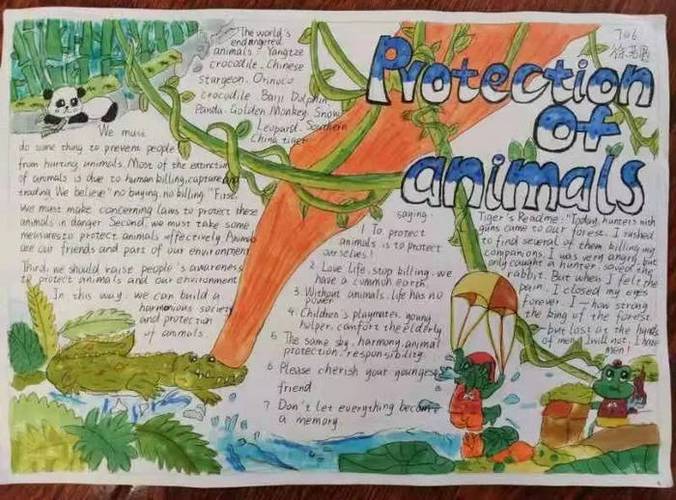 Protection
of
animals
706
The world's
endangered
animals: Yangtze
crocodile. Chinese
Sturgeon. Orinoco
crocodile Baiji Dolphin
Panda. Golden Monkey Snow
Leopard. Southern
China tiger
We must
do some thing to prevent people
from hurting animals. Most of the extinction
of animals is due to human billing, capture and
trading We believe "no buying, no billing "First,
we must make concerning laws to protect these
animals in danger Second, we must take some
measures to protect animals effectively Animals
are our friends and part of our environment
Third, we should raise people's awareness
to protect animals and our environment
In this way, we can build a
harmonious society
and protection
of animals.
saying:
1 To protect
animals is to protect
ourselves!
2. Love life, stop billing. we
have a common earth.
3. Without animals, life has no
power
4. Children's playmates, young
helper, comfort the elderly
5 The same sky, harmony, animal
protection, responsibility
6 Please cherish your youngest
friend
7 Don't let everything become
a memory
Tiger's Readme: "Today, hunters with
guns came to our forest. I rushed
to find several of them billing my
companions. I was very angry, but
only caught a hunter, saved the
rabbit. But when I felt the
pain, I closed my eyes
forever. I - how strong
the king of the forest.
- but lost at the hands
of men, I will not, I hate
men!